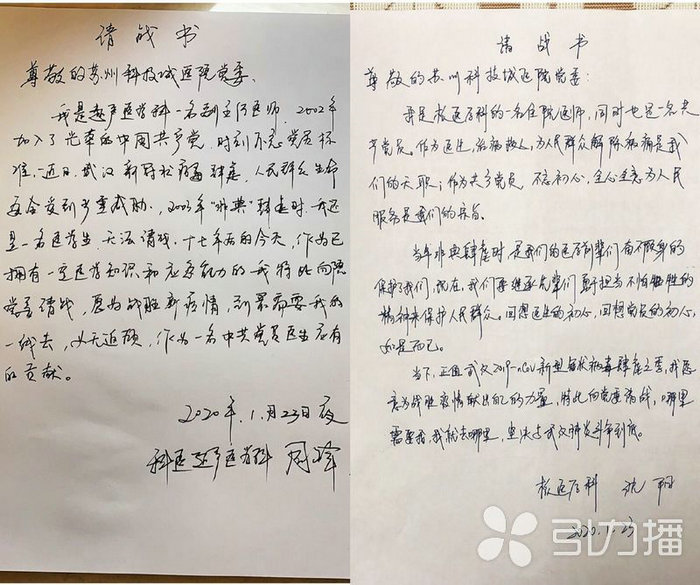 请战书
尊敬的苏州科技城医院党委:
我是超声医学科一名副主任医师,2002年
加入了光荣的中国共产党,时刻不忘党员标
准。近日,武汉新冠状病毒肆虐,人民群众生命
安全受到严重威胁,2003年“非典”肆虐时,我还
是一名医学生,无法请战,十七年后的今天,作为已
拥有一定医学知识和应急能力的我特此向院
党委请战,愿为战胜新疫情,到最需要我的
一线去,义无返顾,作为一名中共党员医生应有
的贡献。
2020年.1月23日夜
科医超声医学科 周峰
请战书
尊敬的苏州科技城医院党委:
我是核医学科的一名住院医师,同时也是一名共
产党员。作为医生,治病救人,为人民群众解除病痛是我
们的天职;作为共产党员,不忘初心,全心全意为人民
服务是我们的宗旨。
当年非典肆虐时,是我们的医学前辈们奋不顾身的
保护了我们,现在,我们要继承先辈们勇于担当不怕牺牲的
精神来保护人民群众。回想医生的初心,回想党员的初心,
如是而已。
当下,正值武汉2019-nCoV新型冠状病毒肆虐之季,我愿
意为战胜疫情献出自己的力量,特此向党委请战,哪里
需要我,我就去哪里,坚决与武汉肺炎斗争到底。
核医学科 沈
2020.1.23
引力播